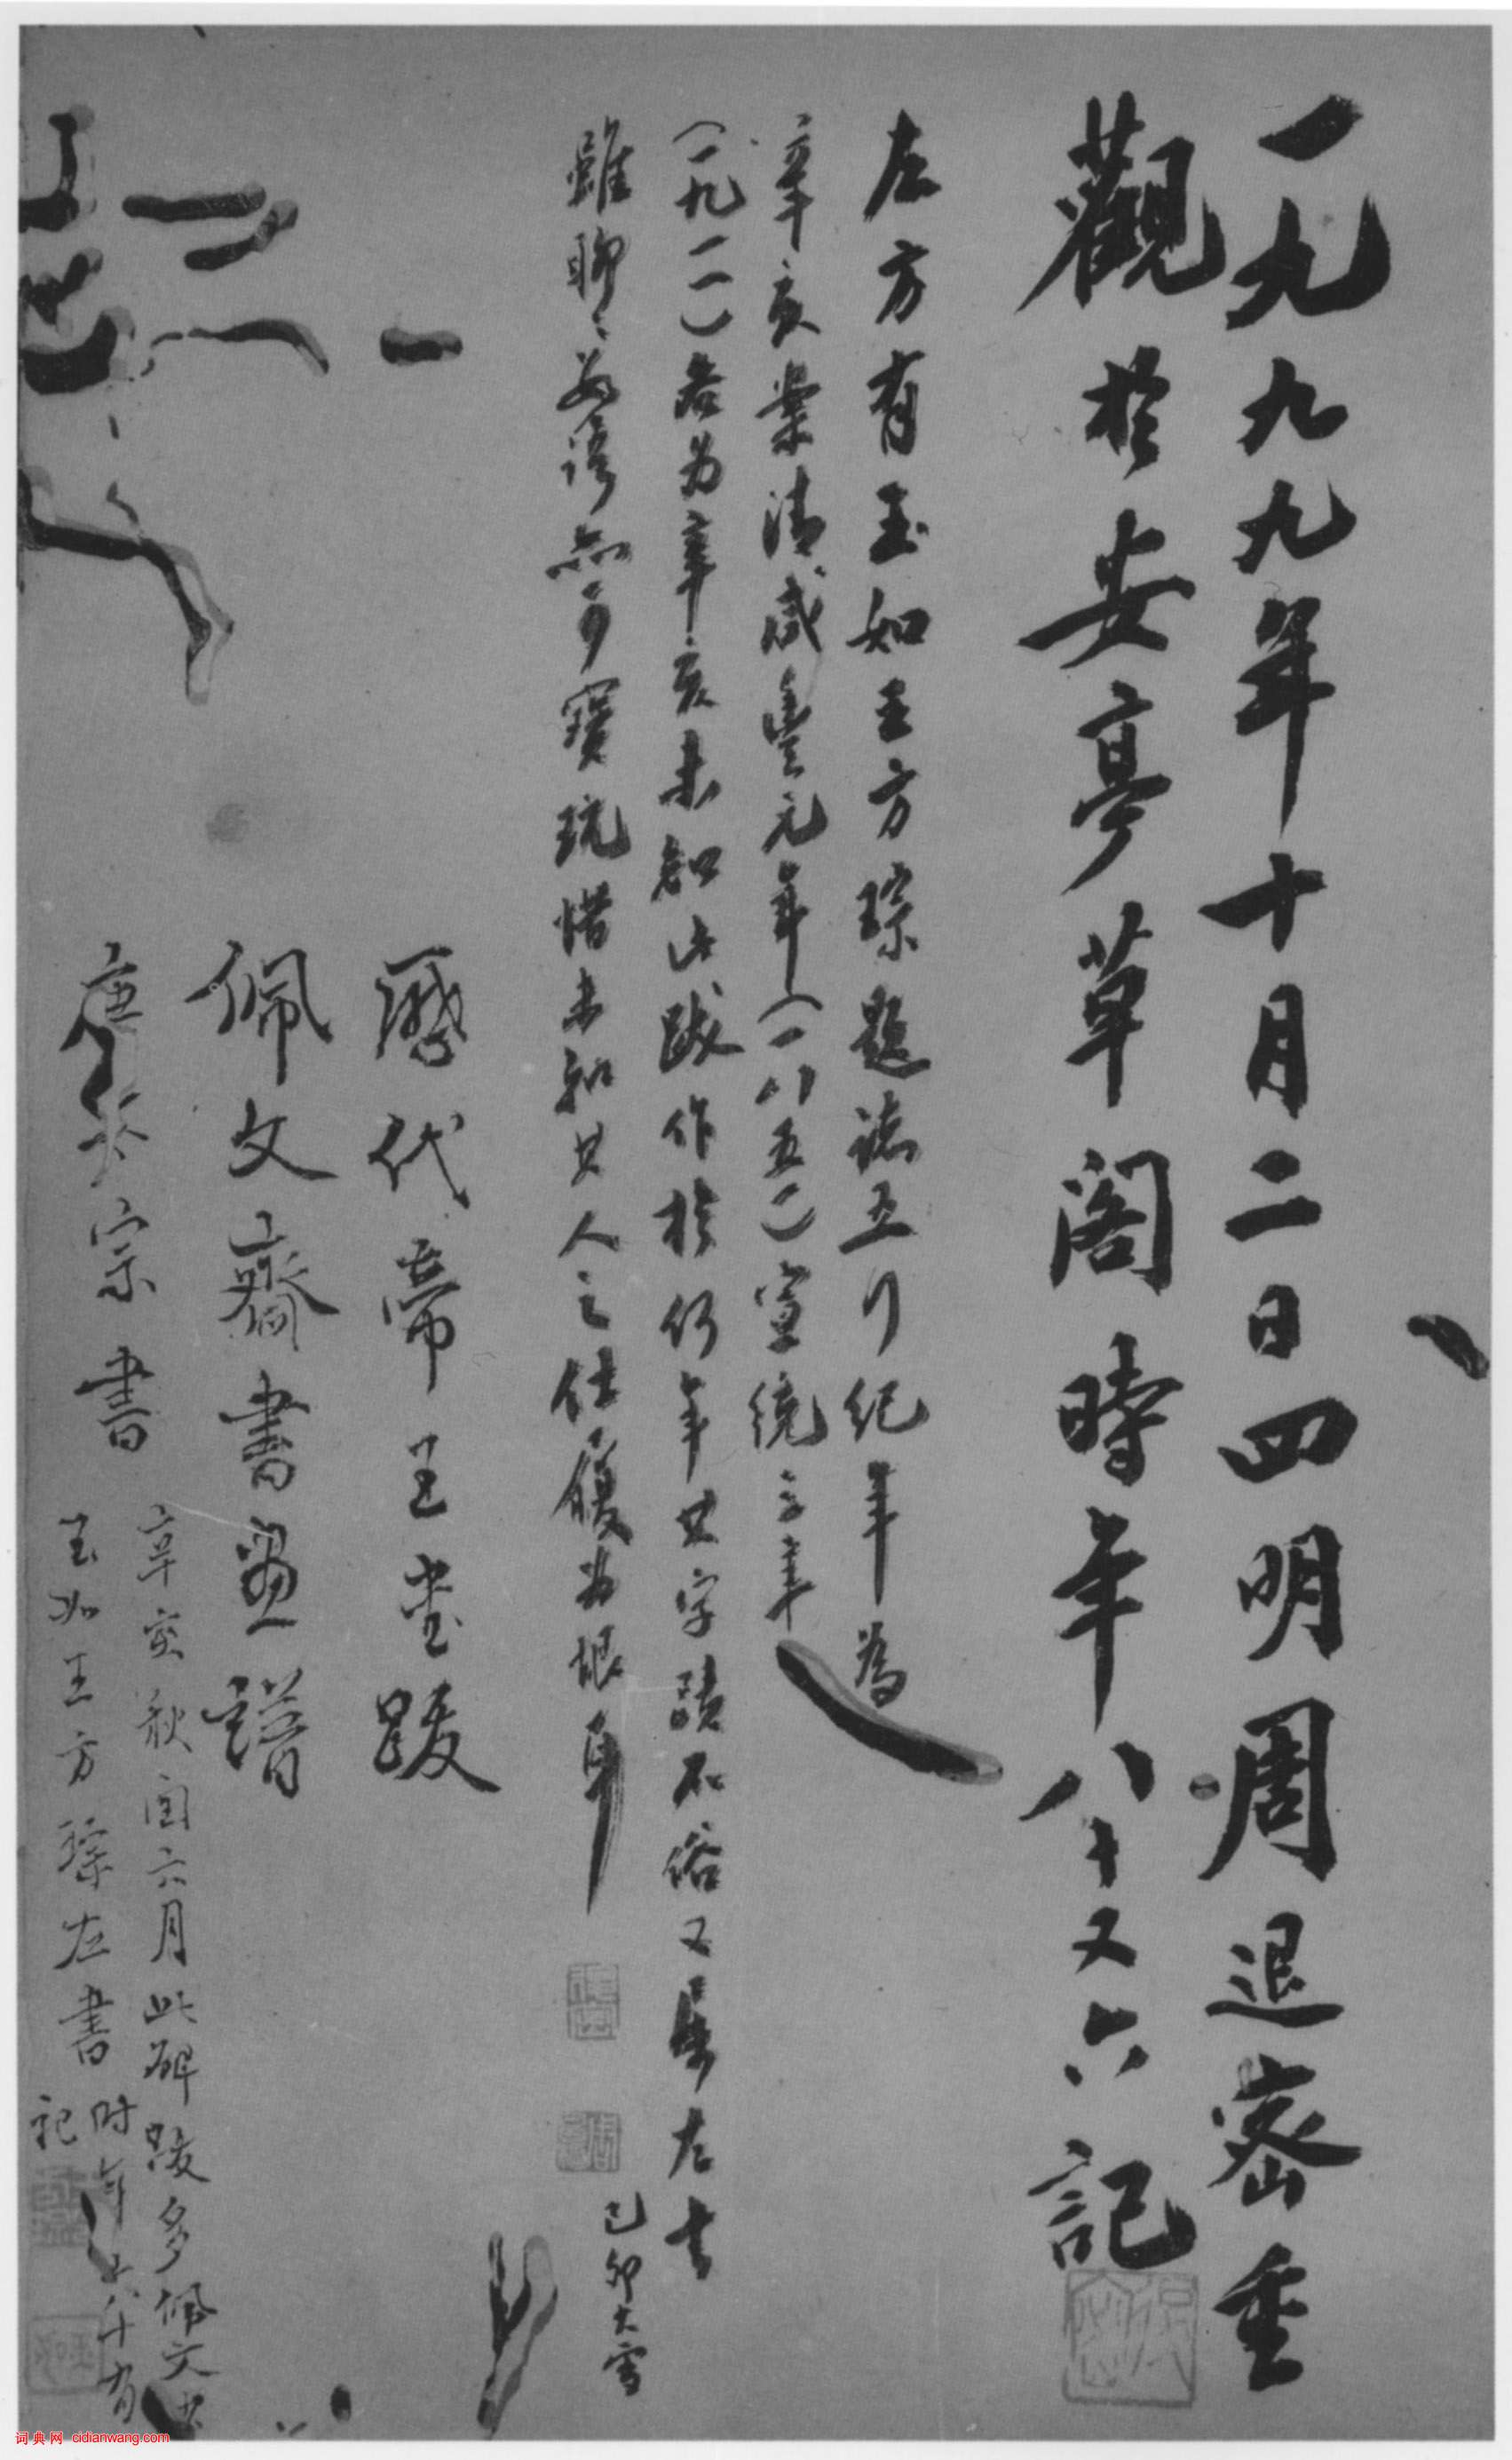 一九九九年十月二日四明周退密重
觀於安亭草閣時年八十又六記
左方有玉如王方琮題誌五行紀年為
辛亥案清咸豐元年(一八五一)宣統三年
(一九一一)皆为辛亥未知此跋作於何年其字蹟不俗又属左书
雖聊〻數語亦可寶玩惜未知其人之仕履为恨耳
己卯大雪
歷代帝王書跋
佩文齋書畫譜
唐太宗書
辛亥秋閏六月此碑跋多佩文
玉如王方琮左書時年六十有
記
词典网 cidianwang.com